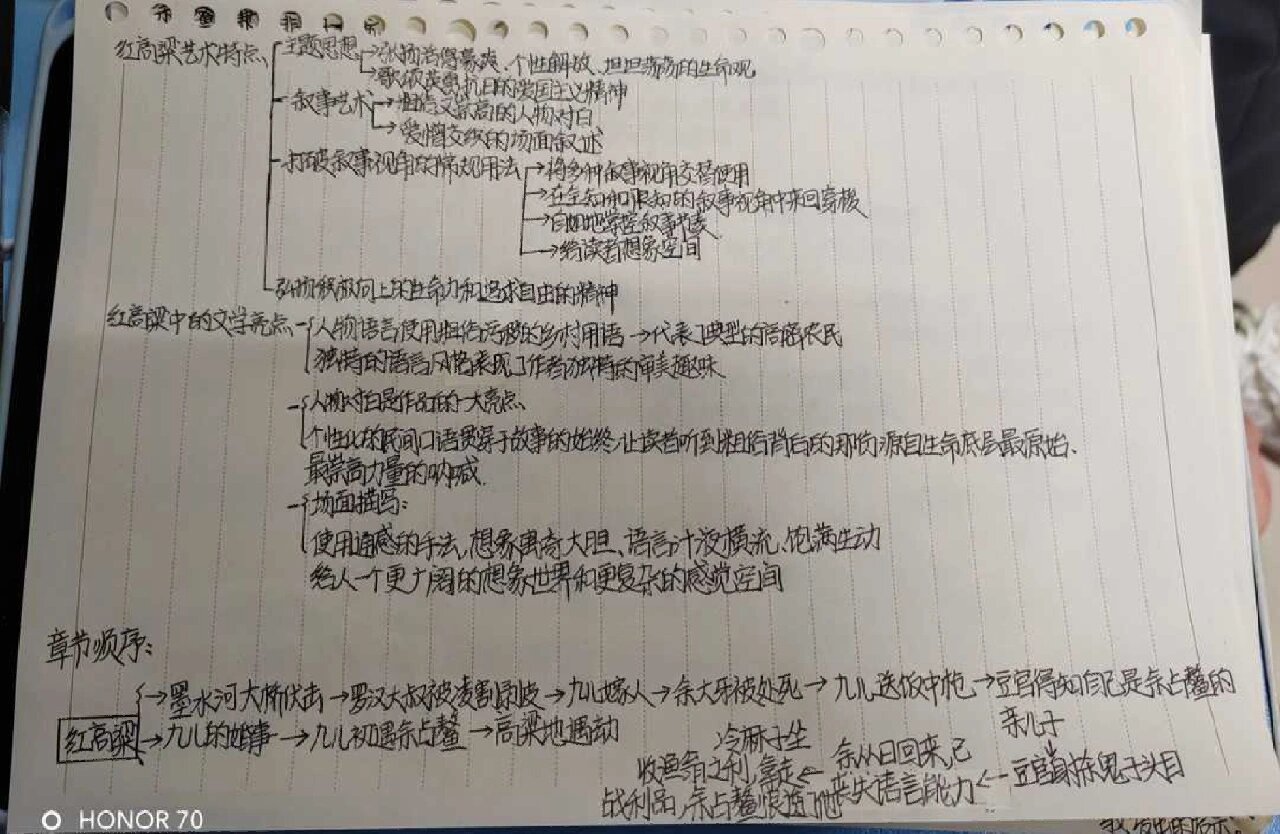 红高粱艺术特点
主题思想
→张扬活得豪爽、个性解放、坦坦荡荡的生命观
→歌颂英勇抗日的爱国主义精神
叙事艺术
→粗俗又崇高的人物对白
→爱憎交织的场面叙述
打破叙事视角的常规用法
→将多种叙事视角交替使用
→在全知和限知的叙事视角中来回穿梭
→自如地掌控叙事节奏
→给读者想象空间
弘扬积极向上的生命力和追求自由的精神
红高粱中的文学亮点
人物语言使用粗俗活泼的乡村用语→代表了典型的高密农民
独特的语言风格表现了作者独特的审美趣味
人物对白是作品的一大亮点、
个性化的民间口语贯穿于故事的始终,让读者听到粗俗背后的那份源自生命底层最原始、
最崇高力量的呐喊.
场面描写:
使用通感的手法,想象离奇大胆、语言汁液横流、饱满生动
给人一个更广阔的想象世界和更复杂的感觉空间
章节顺序:
红高粱
→墨水河大桥伏击→罗汉大叔被凌割剥皮→九儿嫁人→余大牙被处死→九儿送饭中枪→豆官得知自己是余占鳌的
亲儿子
→九儿的婚事→九儿初遇余占鳌→高粱地遇劫
豆官射杀鬼子头目
←余从日回来,已
丧失语言能力←
冷麻子坐
收渔翁之利,拿走←
战利品,余占鳌恨透了他
HONOR 70